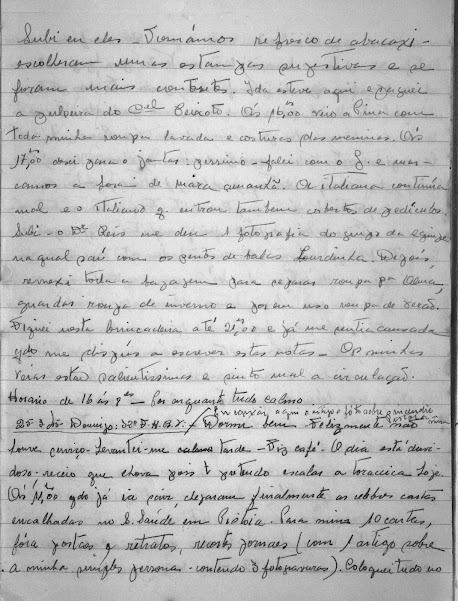 Subi eu eles - Tomámos refresco de abacaxi -
escolheram umas estampas sugestivas e se
foram mais contentes. Ida esteve aqui e paguei
a pulseira do Cel Peixoto. Ás 16,00 veio a Pina com
toda minha roupa lavada e costuras das meninas. Ás
17,00 desci para o jantar: - falei com o G. e mar-
camos a fora de maxa amanhã. A italiana continúa
mal e o italiano q. entrou tambem coberto de pediculos.
Subi - o Dr Reis me deu 1 fotografia do grupo da equipe
na qual saí com os pentes de balas Lourdinha. Depois
remexi toda a bagagem para separar roupa pa Olma,
guardar roupa de inverno e por em uso roupa de verão.
Fiquei nesta brincadeira até 21,00 e já me sentia cansada
qdo me dispús a escrever estas notas - As minhas
veias estão salientissimas e sinto mal a circulação.
Horario de 16 ás 8 hs - Por enquanto tudo calmo
Domingo: Dormi bem - Felizmente não
houve serviço. Levantei-me tarde - Fiz café. O dia está duvi-
doso - receio que chova pois pretendo escalar a hoje.
Ás 11,00 qdo já ia sair, chegaram finalmente as celebres cartas
encalhadas no S. Saúde, em Pistóia. Para mim 10 cartas,
fóra postaes q retratos, recortes jornaes (com 1 artigo sobre
a minha simples persona - contendo 3 fotogravuras). Coloquei tudo no